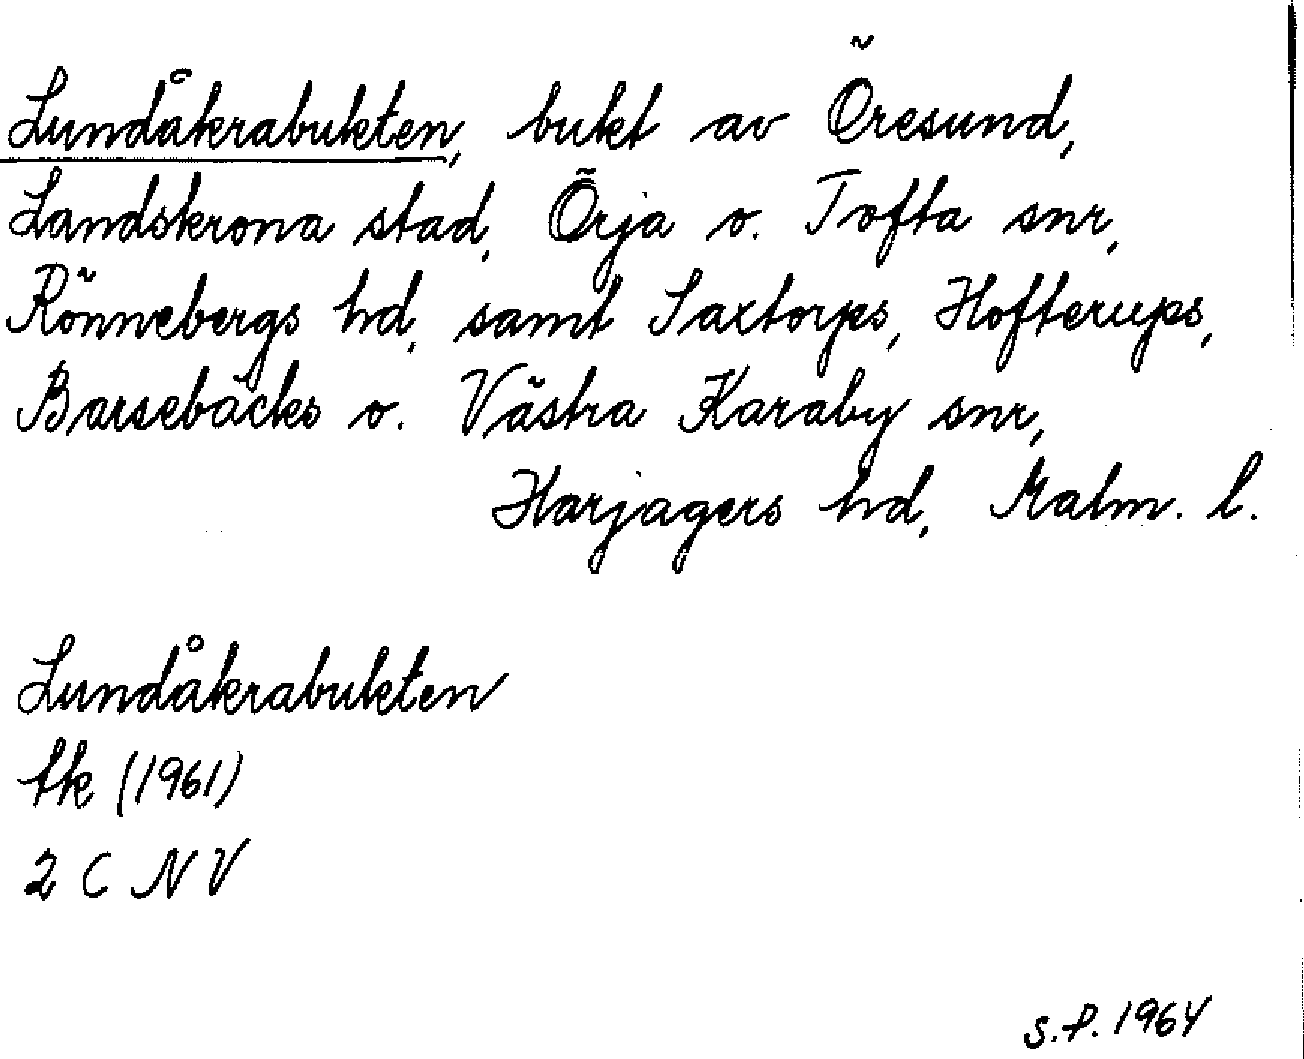 Lundåkrabukten, bukt av Öresund,
Landskrona stad, Örja o. Tofta snr,
Rönnebergs hd, samt Saxtorps, Hofterups,
Barsebäcks o. Västra Karaby snr,
Harjagers hd, Malm. l.
Lundåkrabukten
tk (1961)
2 C N V
S.P. 1964